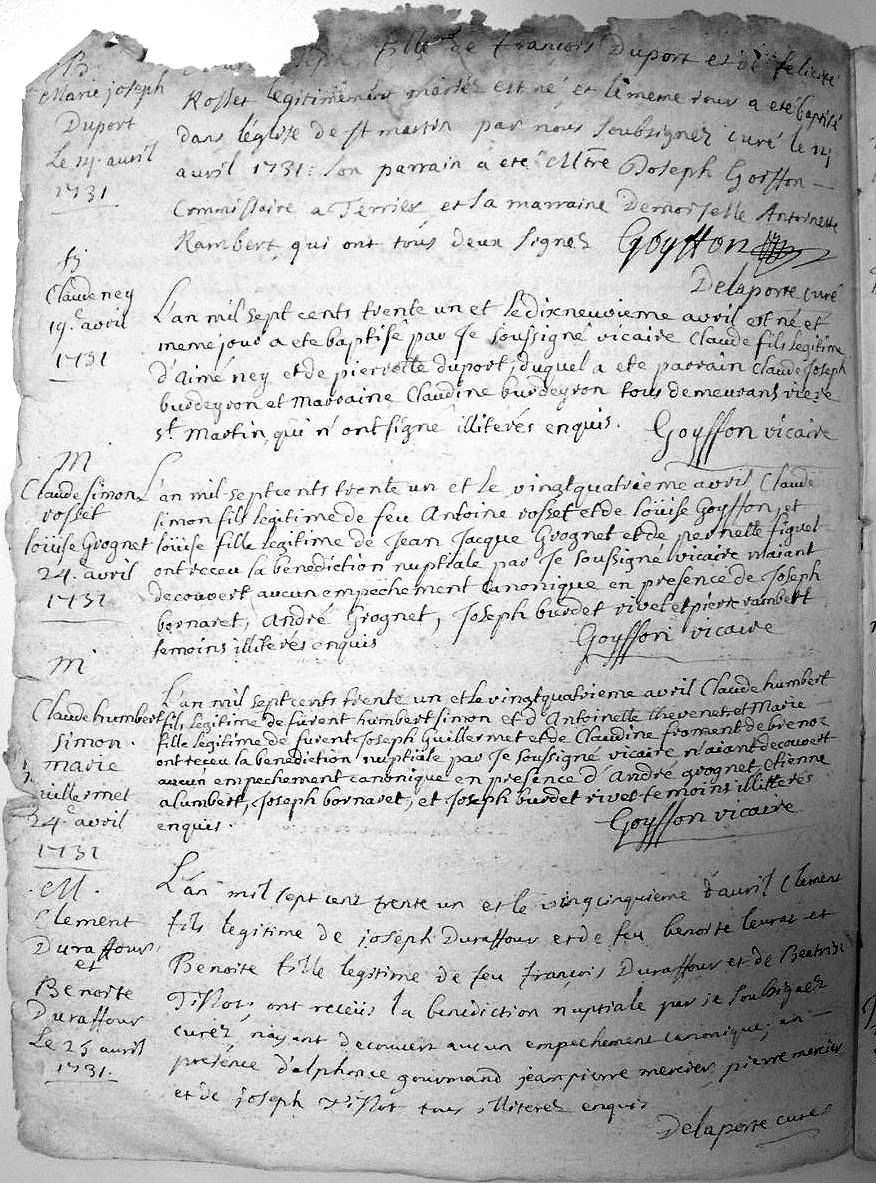 B
Marie joseph
Duport
Le 14 avril
1731
fille de françois Duport et de felicité
Rosset legitimement mariéz est né et le meme jour a eté baptisé
dans léglise de st martin par nous soubsignéz curé le 14
avril 1731: son parrain a eté Mtre Joseph Goiffon
Commissaire a Terrier et sa marraine Demoiselle Antoinette
Rambert qui ont tous deux signéz Goyffon
Delaporte curé
B
Claude ney
19e avril
1731
L'an mil sept cents trente un et Le dixneuvieme avril est né et
meme jour a ete baptisé par Je soussigné vicaire Claude fils legitime
d'Aimé ney et de pierrette duport, duquel a ete parrain Claude Joseph
burdeyron et marraine Claudine burdeyron tous demeurans riere
st Martin qui n'ont signé illiterés enquis. Goyffon vicaire
M
Claude simon
rosset
loüise Grognet
24. avril
1731
L'an mil septcents trente un et Le vingtquatrieme avril Claude
simon fils legitime de feu Antoine rosset et de loüise Goyffon, et
loüise fille legitime de Jean Jacque Grognet et de pernette figuet
ont receu la benediction nuptiale par Je soussigné vicaire n'aiant
decouvert aucun empechement Canonique en presence de Joseph
bornaret, André Grognet, Joseph burdet rivet et pierre rambert
temoins illiterés enquis
Goyffon vicaire
M
Claude humbert
simon.
marie
uillermet
24e avril
1731
L'an mil septcents trente un et Le vingtquatrieme avril Claude humbert
fils legitime de furent humbert simon et d'Antoinette thevenet, et Marie
fille legitime de furent Joseph Guillermet et de Claudine froment de brenoz
ont receu la benediction nuptiale par Je soussigné vicaire n'aiant decouvert
aucun empechement canonique en presence d'André grognet, Etienne
alumbert, Joseph bornaret, et Joseph burdet rivet temoins illitterés
enquis.
Goyffon vicaire
M.
Clement
Duraffour
et
Benoite
Duraffour
Le 25 avril
1731.
L'an mil sept cent trente un et le vingcinquieme d'avril Clement
fils legitime de joseph Duraffour et de feu benoite leurat et
Benoite fille legitime de feu françois Duraffour et de Beatrix
Tissot, ont receüs la benediction nuptiale par je soubsignéz
curéz n'ayant decouvert aucun empechement canonique, en
presence d'alphonce gourmand jeanpierre mercier, pierre mercier
et de joseph Tissot tous illiterez enquis
Delaporte curéz